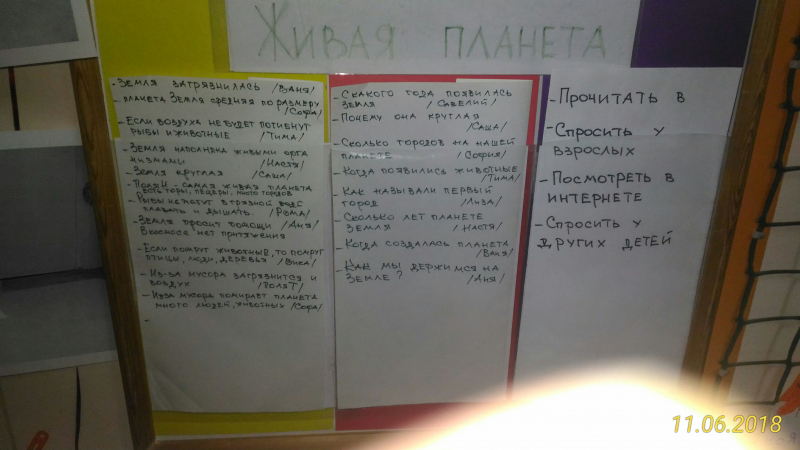 ЖИВАЯ ПЛАНЕТА
- ЗЕМЛЯ ЗАГРЯЗНИЛАСЬ /ВАНЯ/
- ПЛАНЕТА ЗЕМЛЯ СРЕДНЯЯ ПО РАЗМЕРУ
/СОФА/
- ЕСЛИ ВОЗДУХА НЕ БУДЕТ ПОГИБНУТ
РЫБЫ И ЖИВОТНЫЕ /ТИМА/
- ЗЕМЛЯ НАПОЛНЕНА ЖИВЫМИ ОРГА
НИЗМАМИ /НАСТЯ/
- ЗЕМЛЯ КРУГЛАЯ /САША/
САМАЯ ЖИВАЯ ПЛАНЕТА
ЕСТЬ ГОРЫ, ПЕЩЕРЫ, МНОГО ГОРОДОВ
- РЫБЫ НЕ МОГУТ В ГРЯЗНОЙ ВОДЕ
ПЛАВАТЬ И ДЫШАТЬ. /РОМА/
- ЗЕМЛЯ ПРОСИТ ПОМОЩИ /АНЯ/
В КОСМОСЕ НЕТ ПРИТЯЖЕНИЯ
- ЕСЛИ ПОМРУТ ЖИВОТНЫЕ, ТО ПОМРУТ
ПТИЦЫ, ЛЮДИ, ДЕРЕВЬЯ /ВИКА/
- ИЗ-ЗА МУСОРА ЗАГРЯЗНИТСЯ И
ВОЗДУХ /ПОЛЯ Т/
- ИЗЗА МУСОРА ПОМИРАЕТ ПЛАНЕТА
МНОГО ЛЮДЕЙ, ЖИВОТНЫХ /СОФА/
-
- С КАКОГО ГОДА ПОЯВИЛАСЬ
ЗЕМЛЯ /САВЕЛИЙ/
- ПОЧЕМУ ОНА КРУГЛАЯ
/САША/
- СКОЛЬКО ГОРОДОВ НА НАШЕЙ
ПЛАНЕТЕ /СОФИЯ/
- КОГДА ПОЯВИЛИСЬ ЖИВОТНЫЕ
/ТИМА/
- КАК НАЗЫВАЛИ ПЕРВЫЙ
ГОРОД /ЛИЗА/
- СКОЛЬКО ЛЕТ ПЛАНЕТЕ
ЗЕМЛЯ /НАСТЯ/
- КОГДА СОЗДАЛАСЬ ПЛАНЕТА
/ВАНЯ/
- КАК МЫ ДЕРЖИМСЯ НА
ЗЕМЛЕ? /АНЯ/
- ПРОЧИТАТЬ В
- СПРОСИТЬ У
ВЗРОСЛЫХ
- ПОСМОТРЕТЬ В
ИНТЕРНЕТЕ
- СПРОСИТЬ У
ДРУГИХ ДЕТЕЙ
11.06.2018